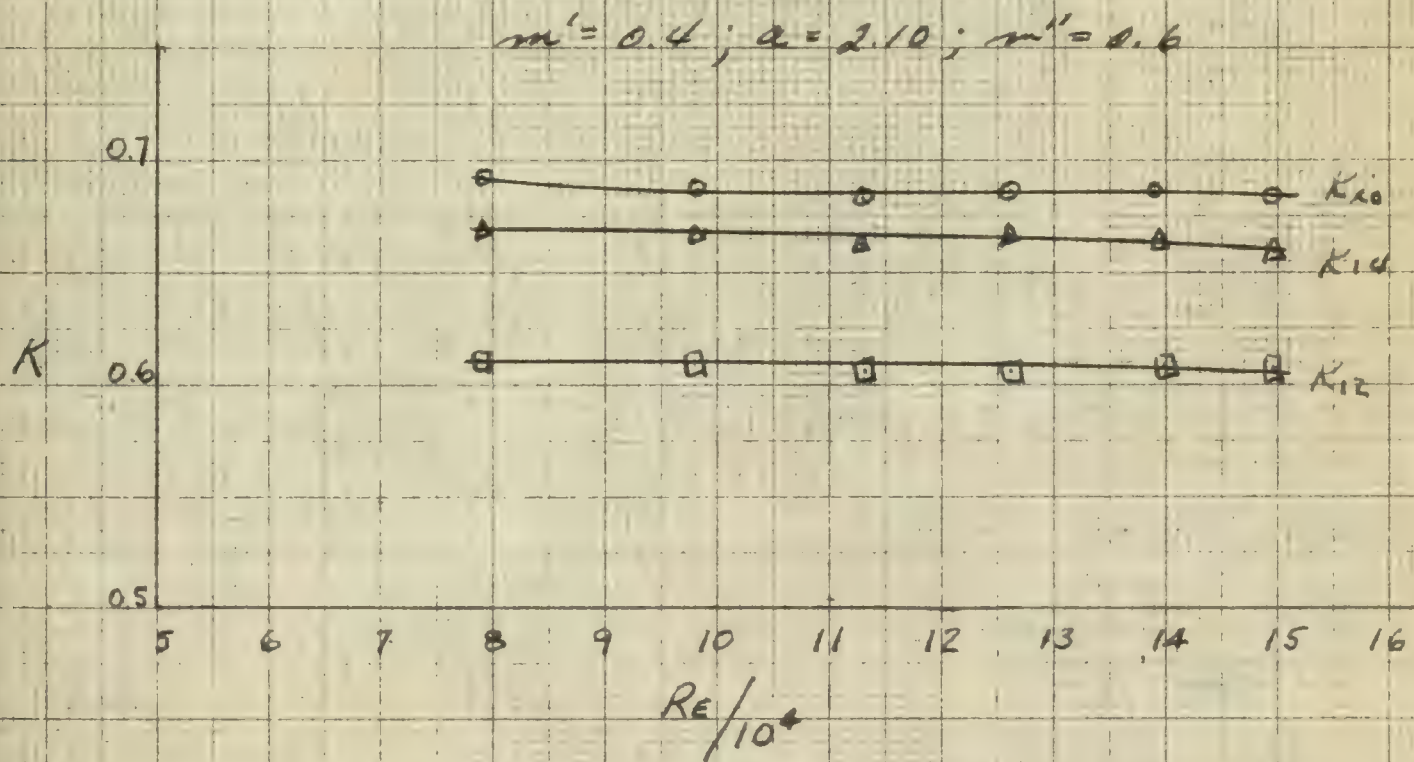 m' = 0.4 ; a = 2.10 ; m'' = 0.6
0.7
K10
K14
K
0.6
K12
0.5
5 6 7 8 9 10 11 12 13 14 15 16
RE/10⁴